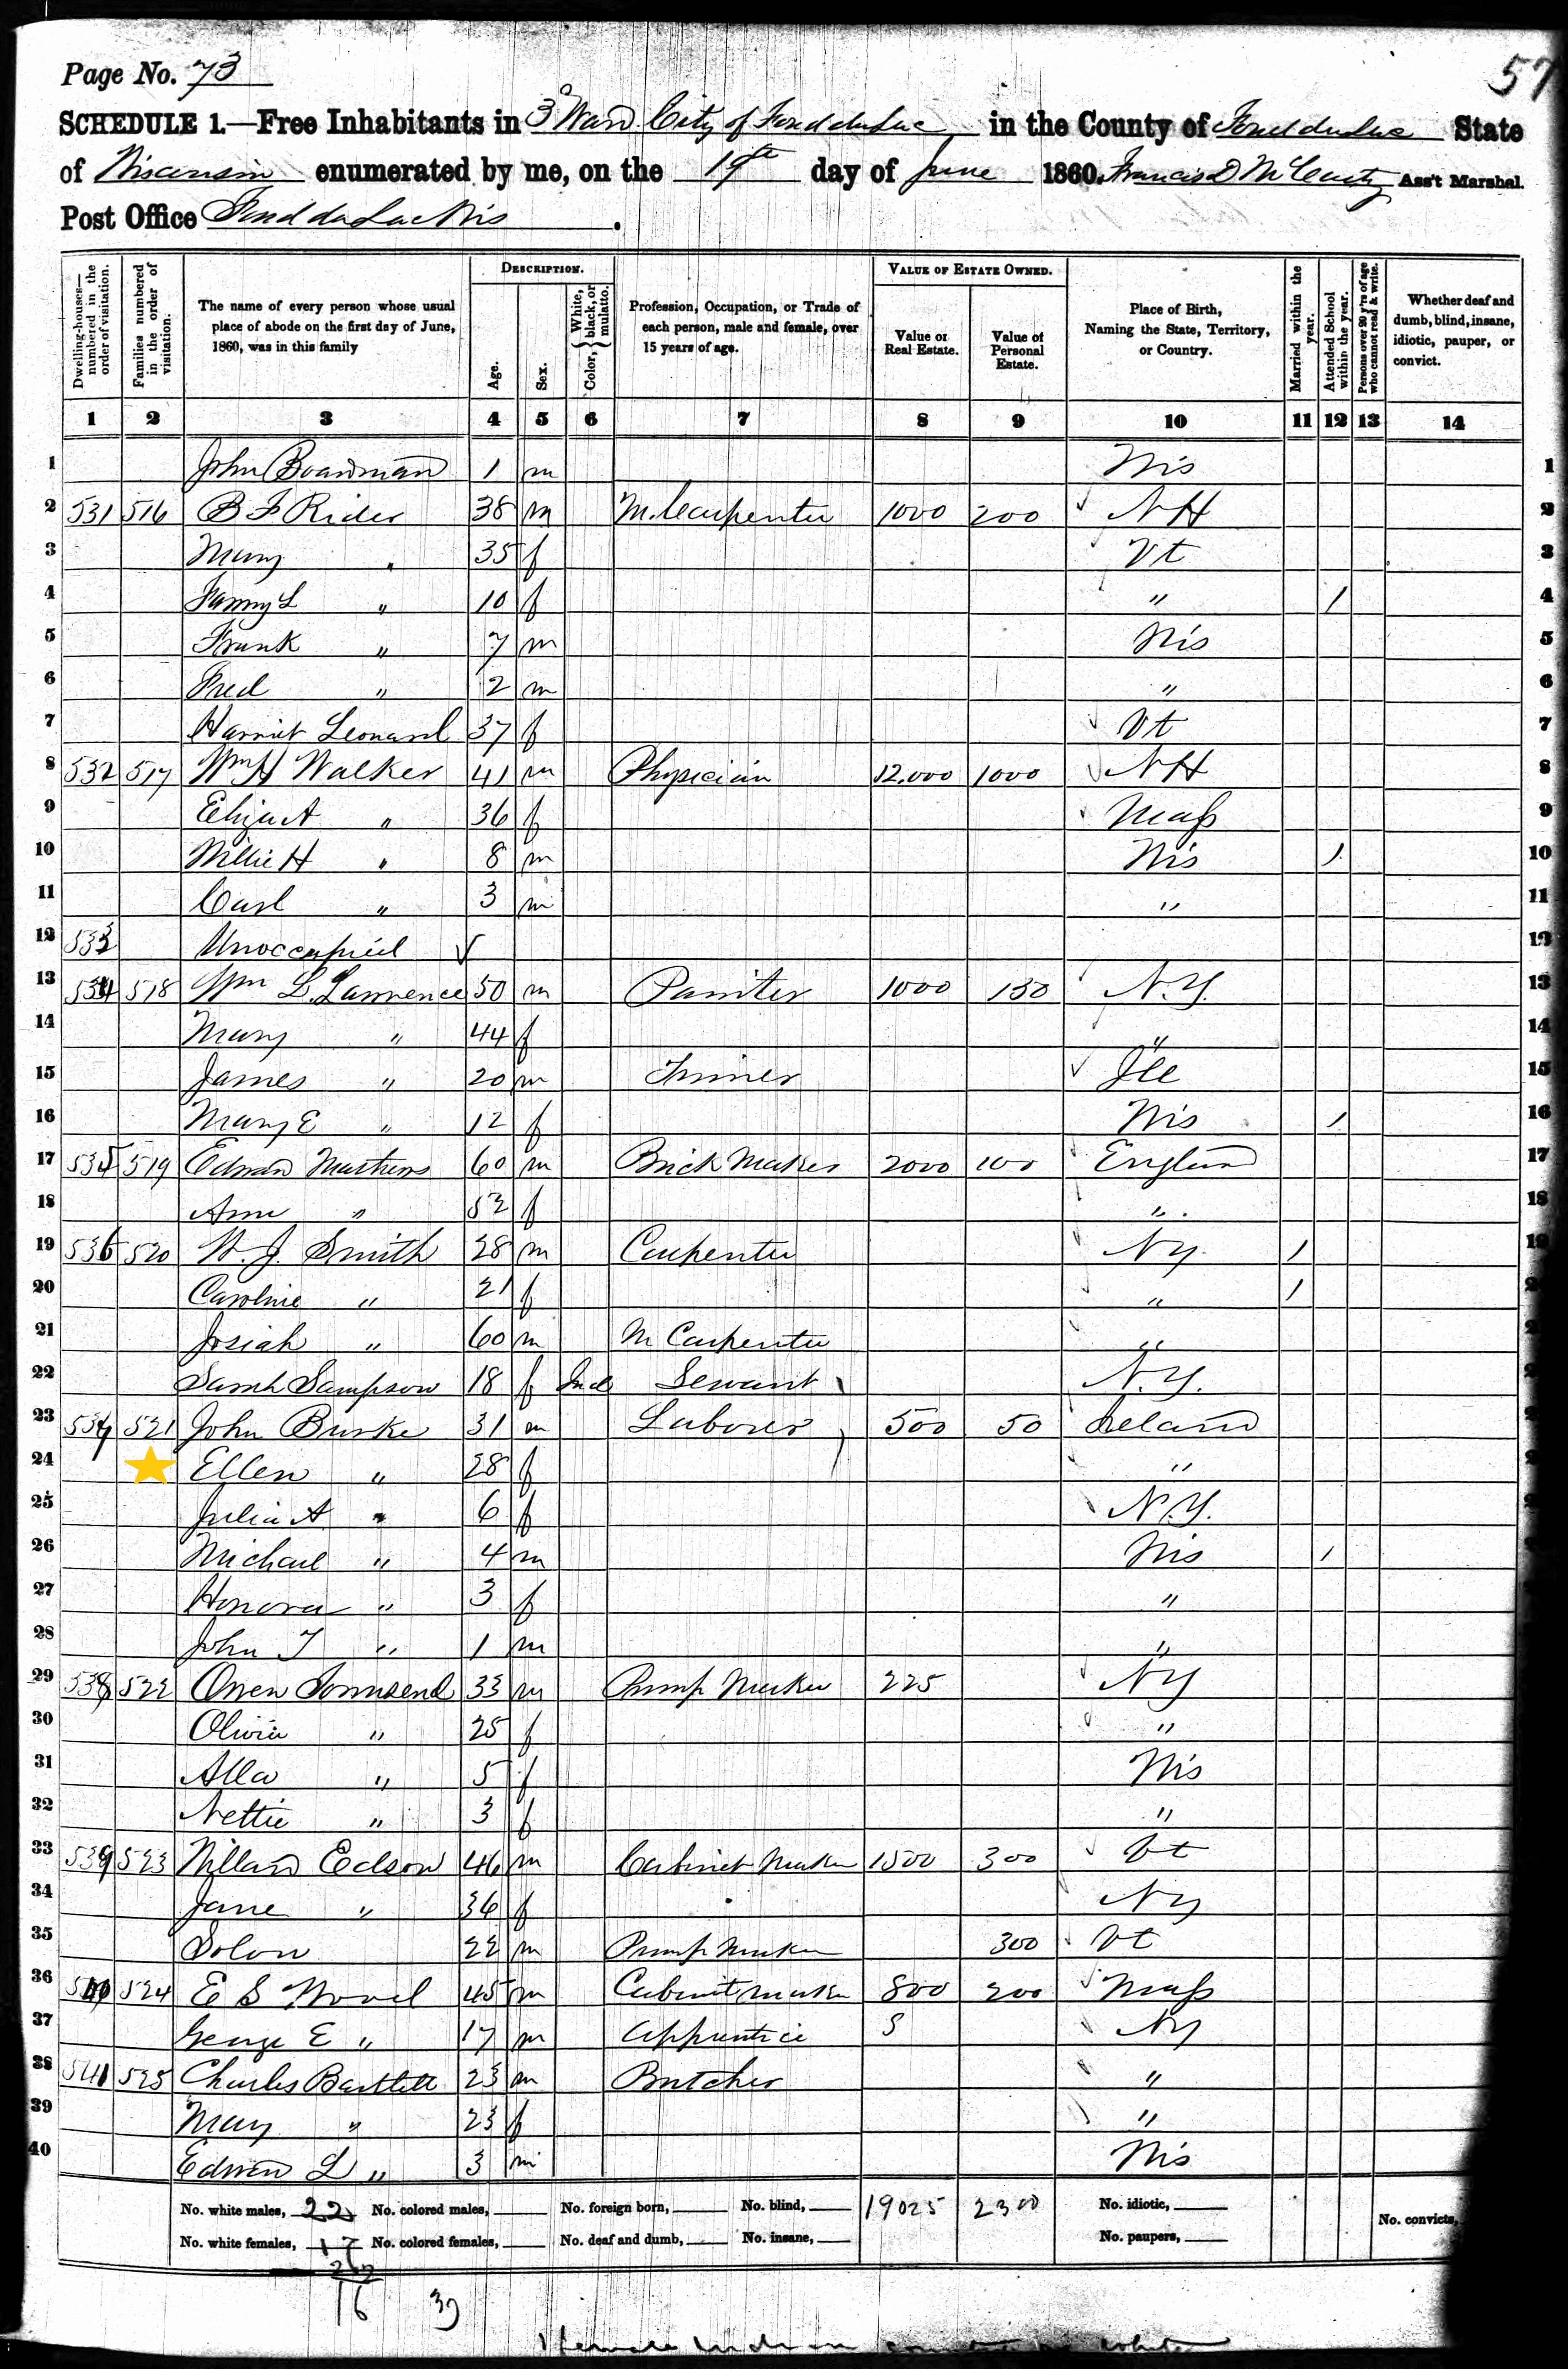 Page No. 73
57
SCHEDULE 1.—Free Inhabitants in 3d Ward City of Fond du Lac in the County of Fond du Lac State
of Wisconsin enumerated by me, on the 19th day of June 1860. Francis D McCarty Ass't Marshal.
Post Office Fond du Lac Wis.
Dwelling-houses—numbered in the order of visitation.
Families numbered in the order of visitation.
The name of every person whose usual place of abode on the first day of June, 1860, was in this family
DESCRIPTION.
Age.
Sex.
Color, { White, black, or mulatto.
Profession, Occupation, or Trade of each person, male and female, over 15 years of age.
VALUE OF ESTATE OWNED.
Value of Real Estate.
Value of Personal Estate.
Place of Birth, Naming the State, Territory, or Country.
Married within the year.
Attended School within the year.
Persons over 20 y'rs of age who cannot read & write.
Whether deaf and dumb, blind, insane, idiotic, pauper, or convict.
1 2 3 4 5 6 7 8 9 10 11 12 13 14
1 John Boardman 1 m Wis 1
2 531 516 B F Rider 38 m M. Carpenter 1000 200 NH 2
3 Mary " 35 f Vt 3
4 Fanny L " 10 f " / 4
5 Frank " 7 m Wis 5
6 Fred " 2 m " 6
7 Harriet Leonard 37 f Vt 7
8 532 517 Wm H Walker 41 m Physician 12,000 1000 NH 8
9 Eliza A " 36 f Mass 9
10 Willie H " 8 m Wis / 10
11 Carl " 3 m " 11
12 533 Unoccupied 12
13 534 518 Wm L. Lawrence 50 m Painter 1000 130 N.Y. 13
14 Mary " 44 f " 14
15 James " 20 m Tinner Ill 15
16 Mary E " 12 f Wis / 16
17 535 519 Edwin Mathews 60 m Brick Maker 2000 100 England 17
18 Ann " 52 f " 18
19 536 520 W. J. Smith 28 m Carpenter NY / 19
20 Caroline " 21 f " / 2
21 Josiah " 60 m M Carpenter " 2
22 Sarah Sampson 18 f Ind Servant N.Y. 2
23 537 521 John Burke 31 m Laborer 500 50 Ireland 2
24 Ellen " 28 f " 2
25 Julia A " 6 f N.Y.
26 Michael " 4 m Wis /
27 Honora " 3 f "
28 John T " 1 m "
29 538 522 Owen Townsend 33 m Pump Maker 225 NY
30 Olivia " 25 f "
31 Alla " 5 f Wis
32 Nettie " 3 f "
33 539 523 Willard Edson 46 m Cabinet Maker 1500 300 Vt
34 Jane " 36 f NY
35 Solon 22 m Pump Maker 300 Vt
36 540 524 E S Wood 45 m Cabinet Maker 800 200 Mass
37 George E " 17 m Apprentice S NY
38 541 525 Charles Bartlett 23 m Butcher "
39 Mary " 23 f "
40 Edwin L " 3 m Wis
No. white males, 22 No. colored males, No. foreign born, No. blind, 19025 2300 No. idiotic,
No. white females, 17 No. colored females, No. deaf and dumb, No. insane, No. paupers, No. convicts,
16 39
1 female Indian counted as white